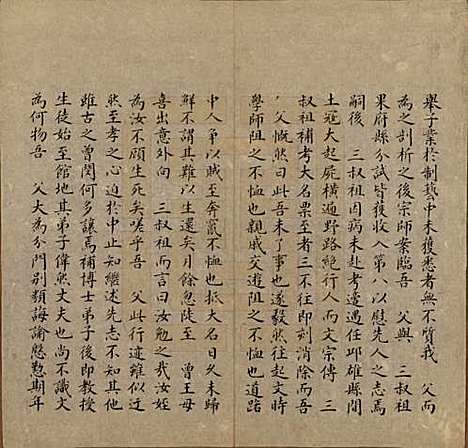 舉子業於制藝中未獲悉者無不質我　父而
為之剖析之後宗師案臨吾　父與　三叔祖
果府縣分試皆獲收入第八以慰先人之志焉
嗣後　三叔祖因病未赴考遭遇任邱雄縣間
土寇大起屍橫遍野路絶行人而文宗傳　三
叔祖補考大名票至者三不往即刻消除而吾
父慨然曰此吾未了事也遂毅然往起文時
學師阻之不恤也親戚交遊阻之不恤也道路
中人争以賊至奔竄不恤也抵大名日久未歸
鮮不謂其難以生還矣月餘忽陡至　曾王母
喜出意外向　三叔祖而言曰汝勉之哉汝姪
為汝不顧生死矣嗟乎吾　父此行迹雖似迂
然至孝之心迫於中止知繼述先志不知其他
雖古之曾閔何多讓焉補博士弟子後即教授
生徒始至館地其弟子偉然丈夫也尚不識文
為何物吾　父大為分門别類誨諭懇懃期年